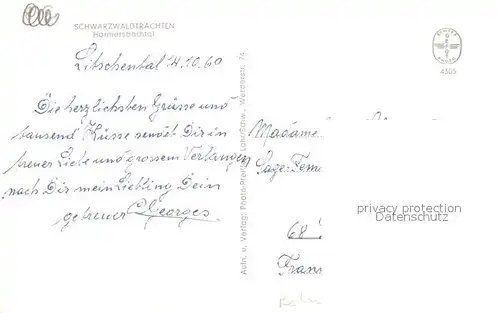 SCHWARZWALDTRACHTEN
Harmersbachtal
Litschental 14.10.60
Die herzlichsten Grüsse und
tausend Küsse sendet Dir in
treuer Liebe und grossem Verlangen
nach Dir mein Liebling Dein
getreuer Georges
Aufn. u. Verlag: Photo-Pfeiffer, Lahr/Schw., Werderstr. 74
4305
Madame
Sage-Fem
68
Frans
privacy protection
Datenschutz